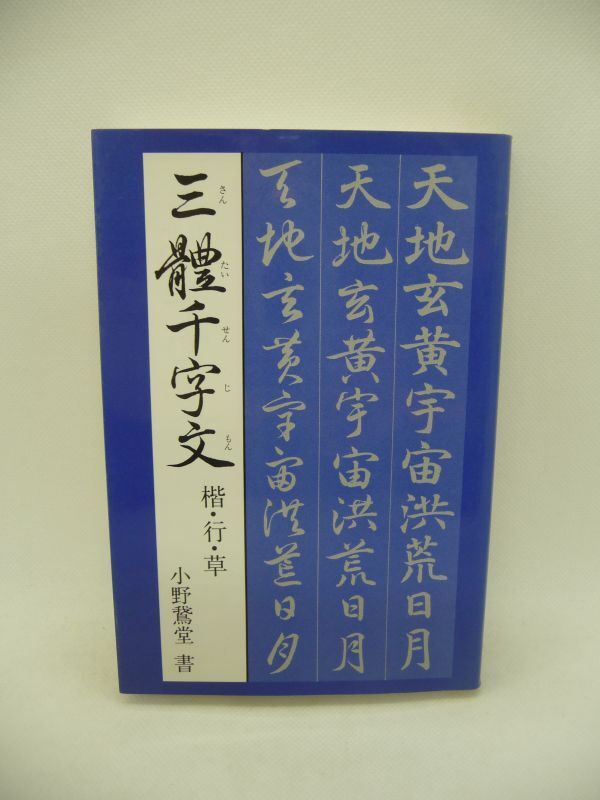 天地玄黄宇宙洪荒日月
天地玄黄宇宙洪荒日月
天地玄黄宇宙洪荒日月
三體千字文
さん たい せん じ もん
楷・行・草
小野鵞堂 書